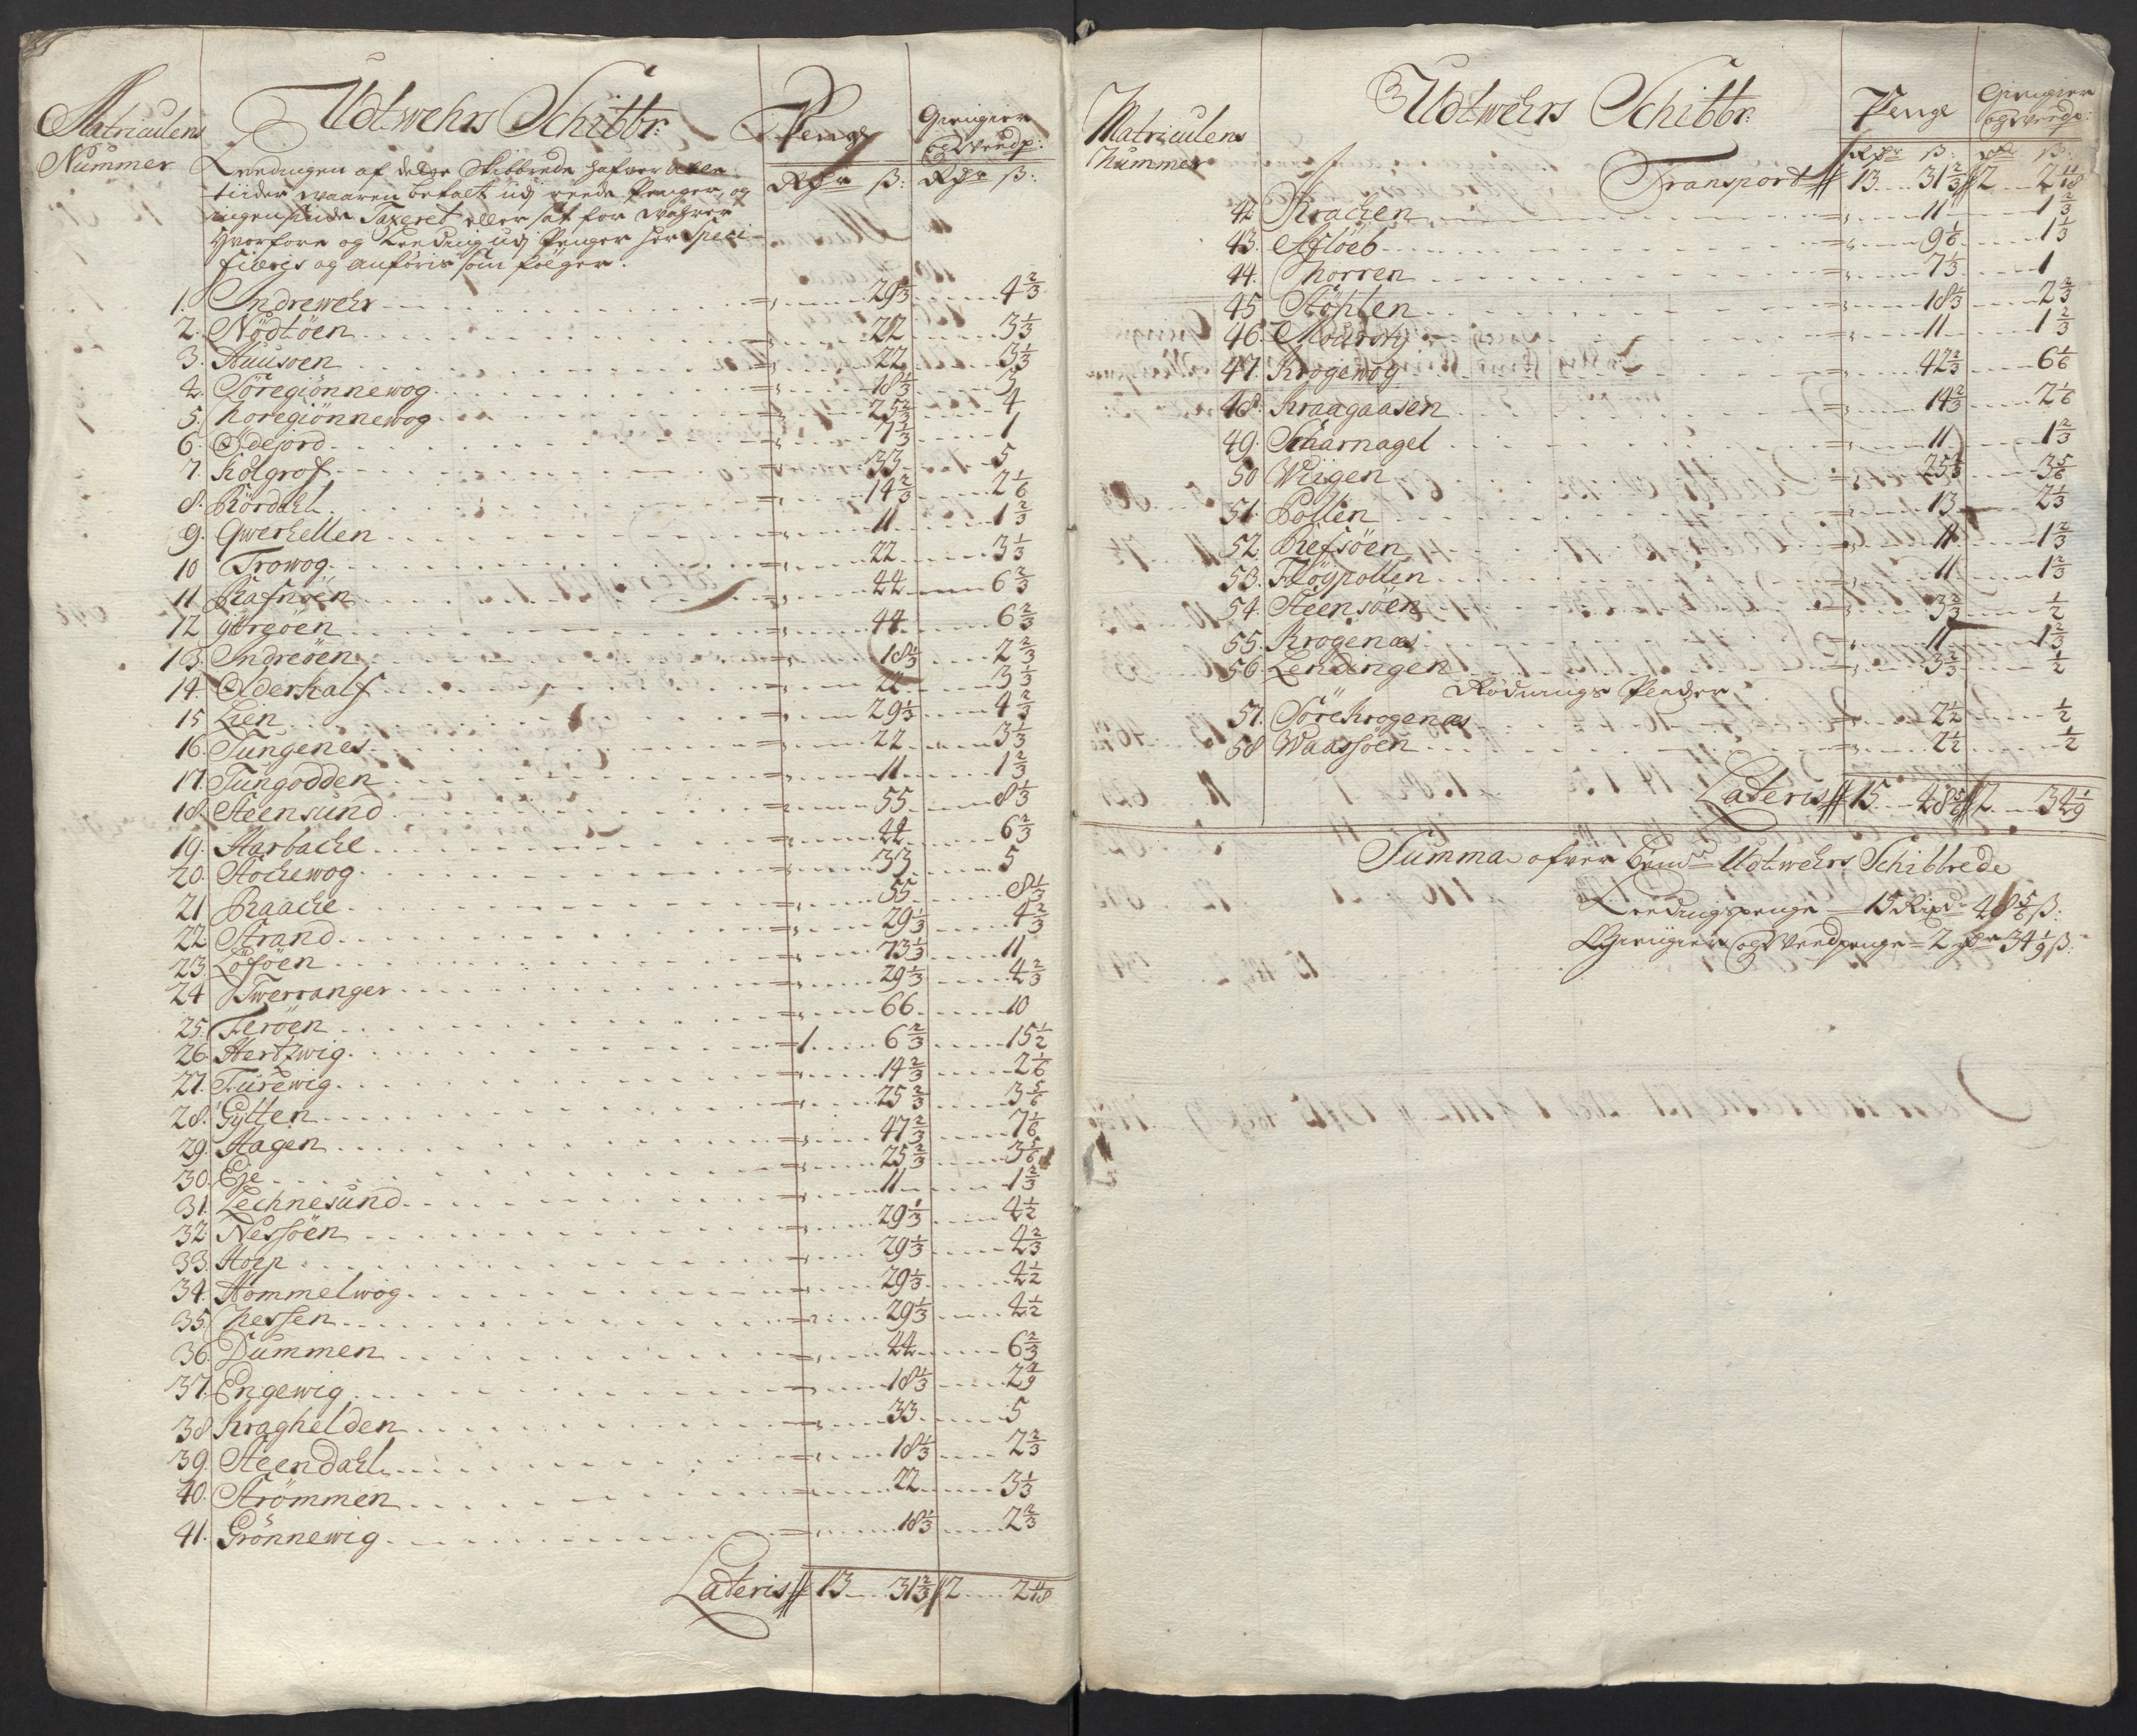 Matriculens
Nummer
Udtwehrs Schibbr:
Penge
Giengier
og Weedp:
Leedingen af dette Skibbrede hafver allen
tiider waaren betalt udj reede Penger, og
ingensinde Taxeret eller sat for wahrer
Hvorfore og Leeding udj Penger her speci-
ficeris og anføris som følger.
Rdr ß: Rdr ß:
1. Indrewehr 29 1/3 4 2/3
2. Nödtöen 22 3 1/3
3. Huusöen 22 3 1/3
4. Söregiönnewog 18 1/3 3
5. Noregiönnewog 25 2/3 4
6. Ödejord 7 1/3 1
7. Kolgrof 33 5
8. Rördahl 14 2/3 2 1/6
9. Qwerhellen 11 1 2/3
10 Trowog 22 3 1/3
11 Rafnöen 44 6 2/3
12 yttreöen 44 6 2/3
13. Indreöen 18 1/3 2 2/3
14 Olderhalf 22 3 1/3
15 Lien 29 1/3 4 2/3
16. Tungenes 22 3 1/3
17. Tungodden 11 1 2/3
18. Steensund 55 8 1/3
19. Harbache 44 6 2/3
20. Stochewog 33 5
21 Raache 55 8 1/3
22 Strand 29 1/3 4 2/3
23. Löföen 73 1/3 11
24 Twerranger 29 1/3 4 2/3
25. Feröen 66 10
26. Hertzwig 1 6 2/3 15 1/2
27. Turewig 14 2/3 2 1/6
28. Gytten 25 2/3 3 5/6
29. Hagen 47 2/3 7 1/6
30. Eje 25 2/3 3 5/6
31. Lechnesund 11 1 2/3
32. Nessöen 29 1/3 4 1/2
33. Hop 29 1/3 4 2/3
34. Hommelwog 29 1/3 4 1/2
35. Nessen 29 1/3 4 1/2
36. Dummen 44 6 2/3
37. Engewig 18 1/3 2 2/9
38 Kraghelden 33 5
39. Steendahl 18 1/3 2 2/3
40. Strömmen 22 3 1/3
41. Grönnewig 18 1/3 2 2/3
Lateris 13 31 2/3 2 2 11/18
Matriculens
Nummer
Udtwehrs Schibbr:
Penge
Giengier
og Weedp:
Rdr ß: Rdr ß:
Transport 13 31 2/3 2 2 11/18
42 Krachen 11 1 2/3
43. Afløeb 9 1/6 1 1/3
44. Norren 7 1/3 1
45 Stöhlen 18 1/3 2 2/3
46. 11 1 2/3
47. Krogewog 42 2/3 6 1/6
48. Kraagaasen 14 2/3 2 1/6
49. Scharnagel 11 1 2/3
50 Wiigen 25 1/3 3 5/6
51. Pollen 13 2 1/3
52. Refsöen 11 1 2/3
53. Flöypollen 11 1 2/3
54. Steensöen 3 2/3 1/2
55. Krogenæs 11 1 2/3
56. Lendingen 3 2/3 1/2
Rödnings Pladser
57. Sörekrogenæs 2 1/2 1/2
58 Waassöen 2 1/2 1/2
Lateris 15 48 5/6 2 34 1/9
Summa ofver bemte Udtwehrs Schibbrede
Leedingspenge = 15 Rixdr 48 5/6 ß:
Giengier og Weedpenge = 2 Rdr 34 1/9 ß.